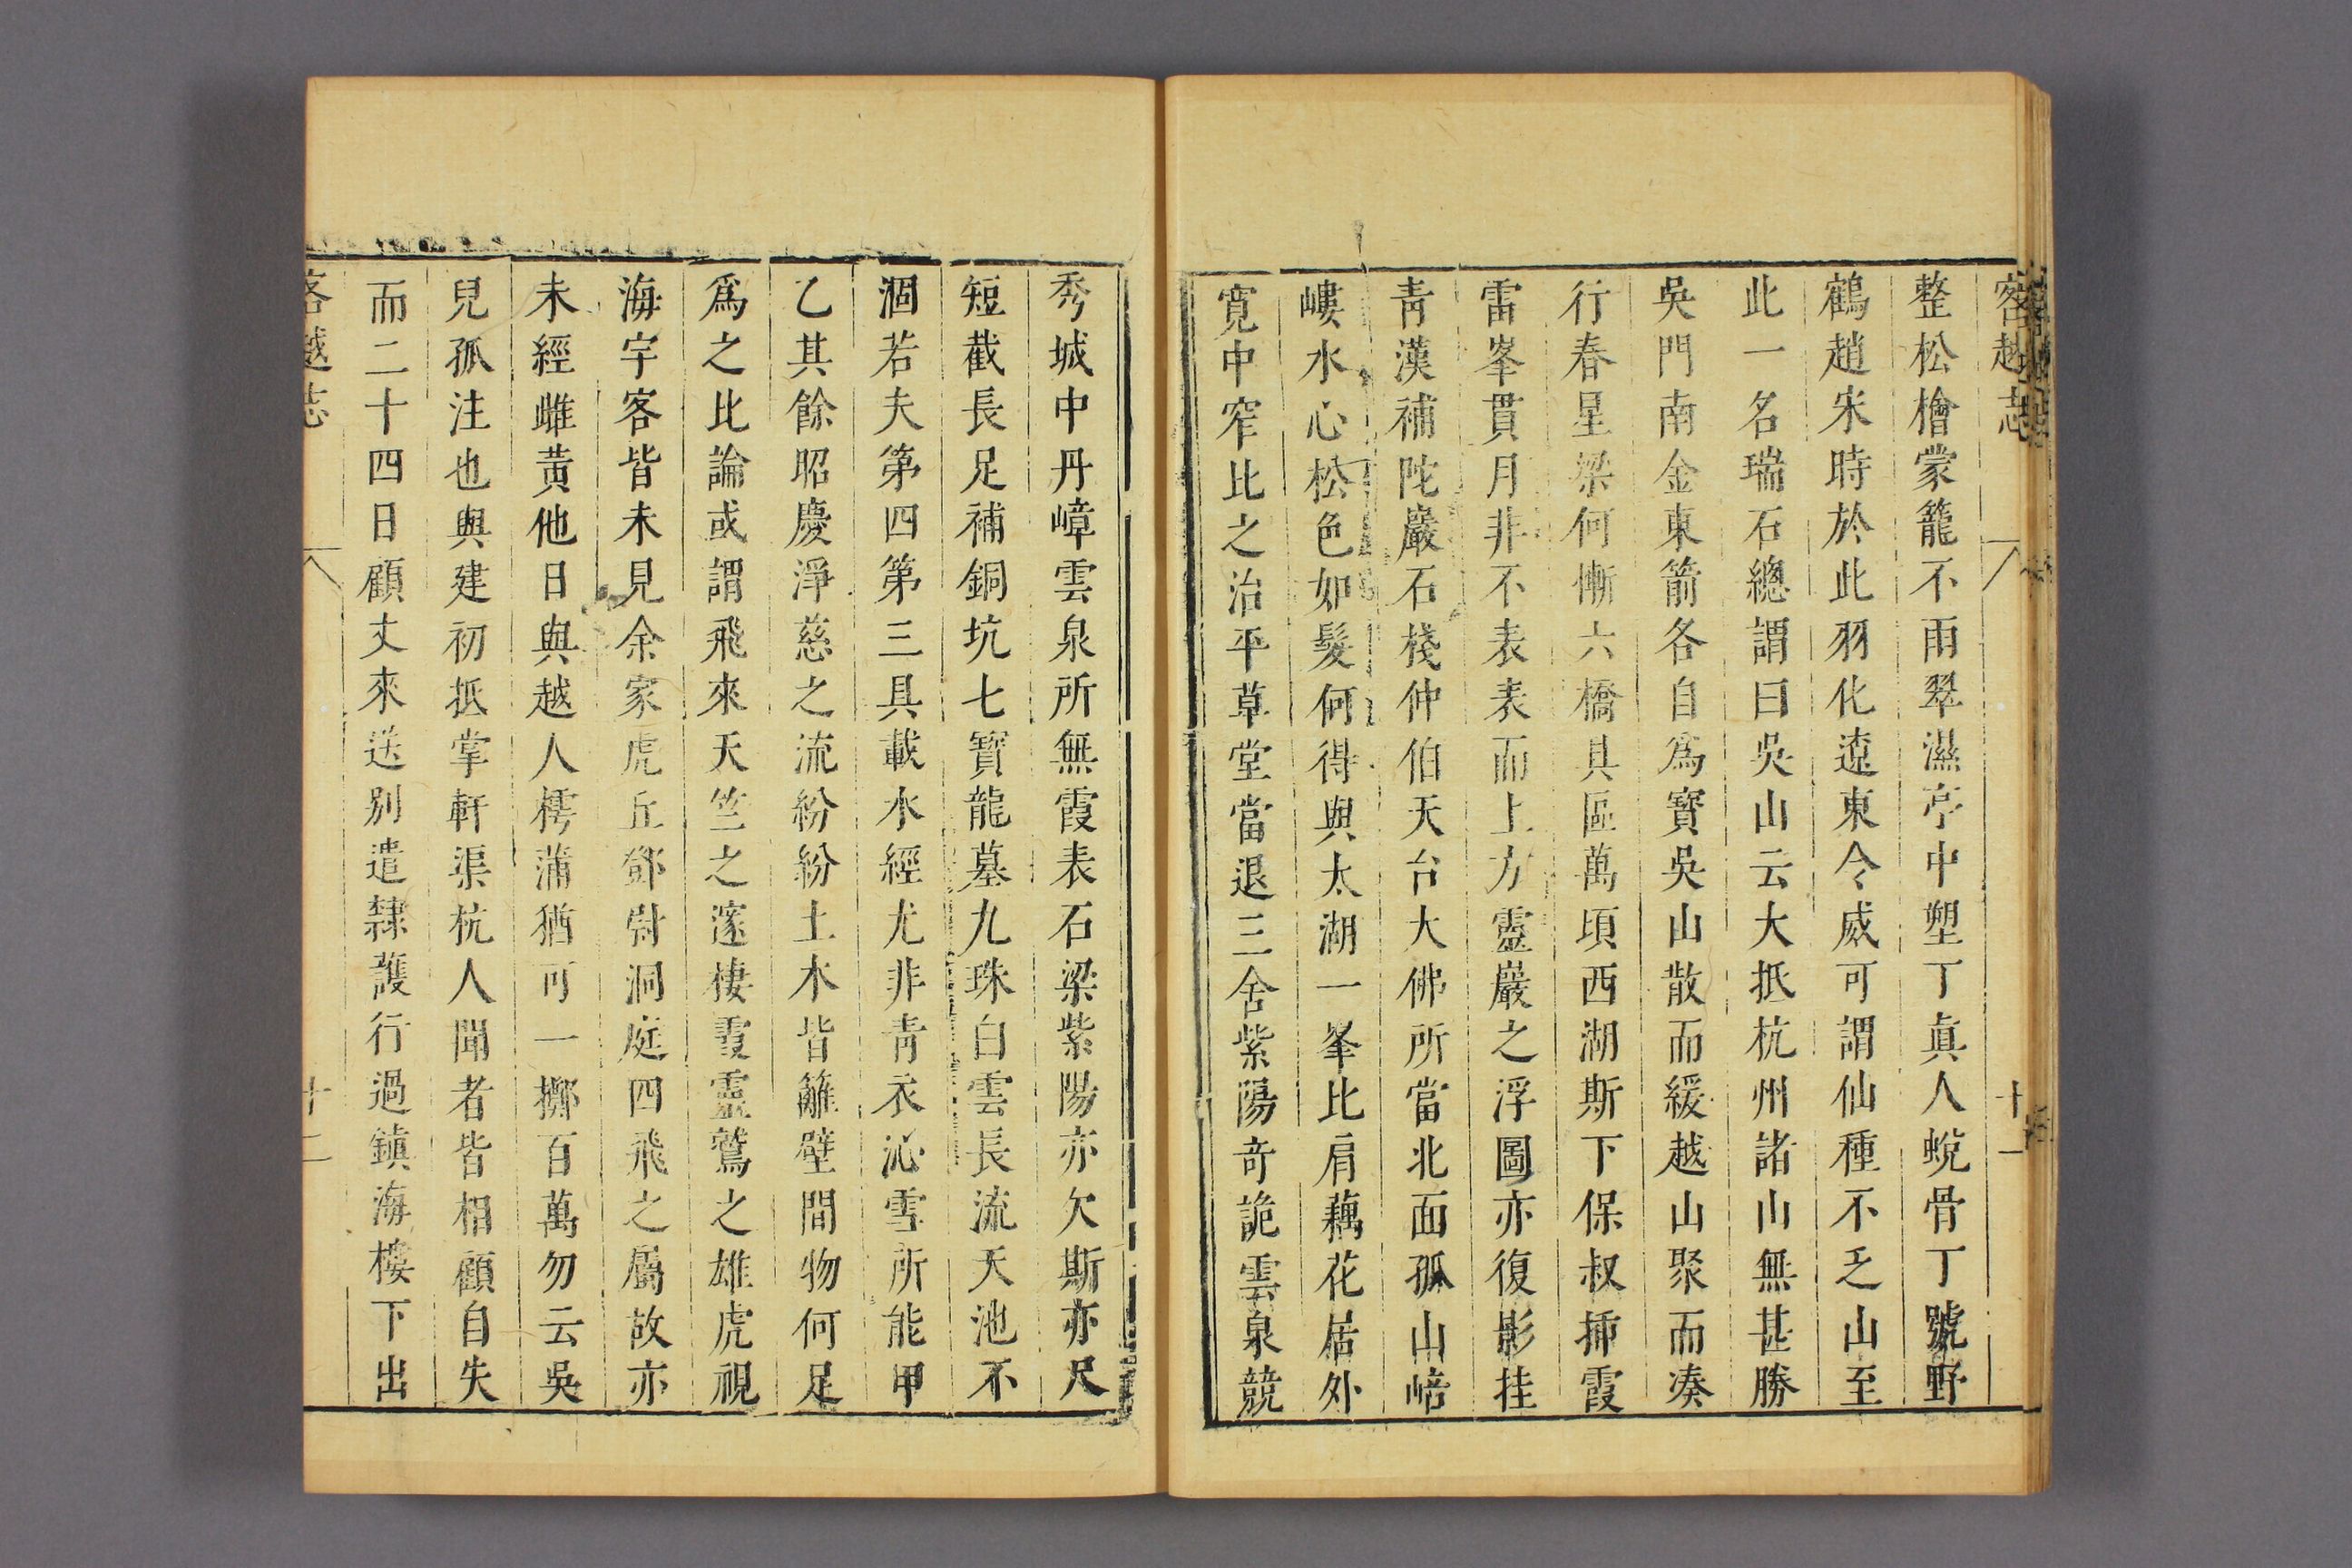 客越志
十一
整松檜蒙籠不雨翠濕亭中塑丁眞人蛻骨丁號野
鶴趙宋時於此羽化遼東令威可謂仙種不乏山至
此一名瑞石總謂曰吳山云大抵杭州諸山無甚勝
吳門南金東箭各自爲寶吳山散而緩越山聚而湊
行春星梁何慚六橋具區萬頃西湖斯下保叔揷霞
雷峯貫月非不表表而上方靈巖之浮圖亦復影挂
靑漢補陀巖石棧仲伯天台大佛所當北面孤山㟝
嶁水心松色如髮何得與太湖一峯比肩藕花居外
寬中窄比之治平草堂當退三舍紫陽奇詭雲泉競
秀城中丹嶂雲泉所無霞表石梁紫陽亦欠斯亦尺
短截長足補銅坑七寶龍墓九珠白雲長流天池不
涸若夫第四第三具載水經尤非靑衣沁雪所能甲
乙其餘昭慶淨慈之流紛紛土木皆籬壁間物何足
爲之比論或謂飛來天竺之邃棲霞靈鷲之雄虎視
海宇客皆未見余家虎丘鄧尉洞庭四飛之屬故亦
未經雌黃他日與越人樗蒲猶可一擲百萬勿云吳
兒孤注也與建初抵掌軒渠杭人聞者皆相顧自失
而二十四日顧丈來送別遣隸護行過鎮海樓下出
客越志
十二